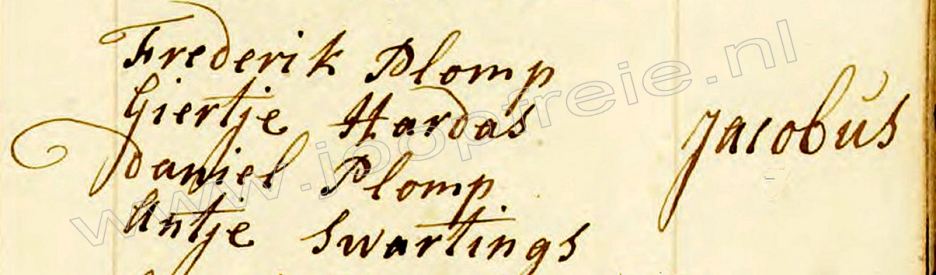 Frederik Plomp
Giertje Hardas
Daniel Plomp
Antje Swartings
Jacobús
www.joopfreie.nl